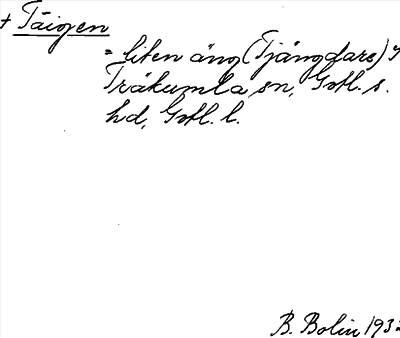 + Täigen
= liten äng (Tjängdare) i
Träkumla sn, Gotl. s.
hd, Gotl. l.
B. Bolin 1932